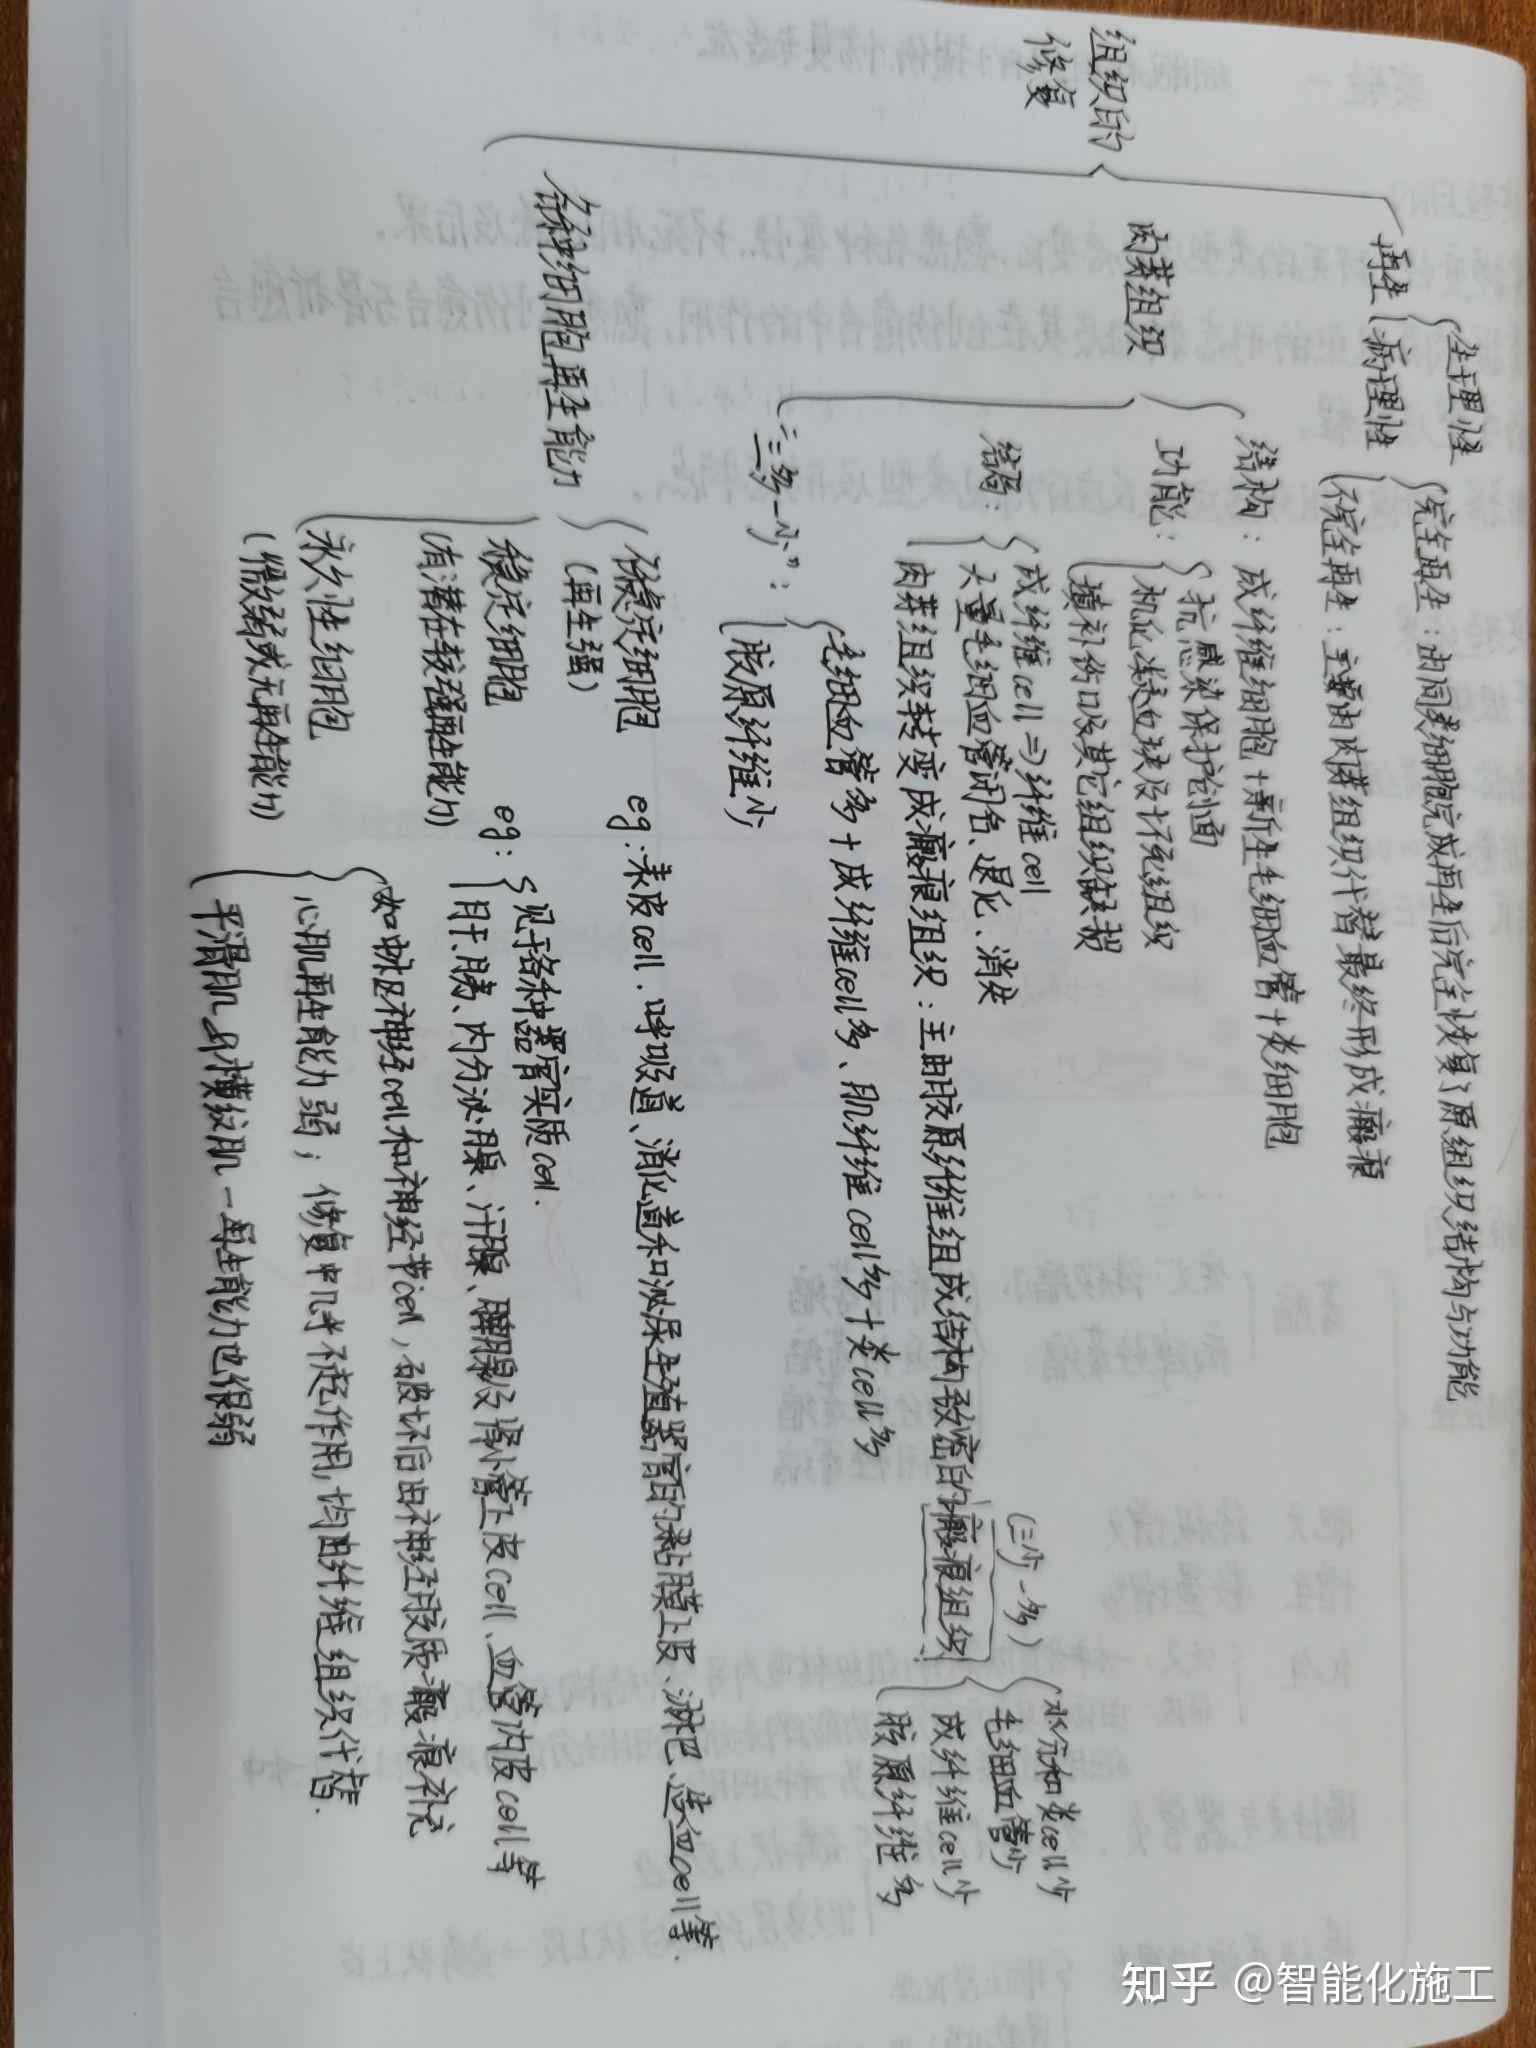 组织的
修复
再生
生理性
病理性
完全再生：由同类细胞完成再生后完全恢复了原组织结构与功能
不完全再生：主要由肉芽组织代替最终形成瘢痕
肉芽组织
结构：成纤维细胞+新生毛细血管+炎细胞
功能：
抗感染保护创面
机化凝血块及坏死组织
填补伤口及其它组织缺损
结局：
成纤维cell⇒纤维cell
大量毛细血管闭合、退化、消失
肉芽组织转变成瘢痕组织：主由胶原纤维组成结构致密的瘢痕组织
(三少一多)
水分和炎cell少
毛细血管少
成纤维cell少
胶原纤维多
“三多一少”：
毛细血管多+成纤维cell多、肌纤维cell多+炎cell多
胶原纤维少
各种细胞再生能力
不稳定细胞
(再生强)
eg:表皮cell.呼吸道、消化道和泌尿生殖器官的黏膜上皮、淋巴、造血cell等.
稳定细胞
(有潜在较强再生能力)
eg:
见于各种器官实质cell.
肝、胰、内分泌腺、汗腺、唾腺及肾小管上皮cell、血管内皮cell等
永久性细胞
(微弱或无再生能力)
如中枢神经cell和神经节cell,破坏后由神经胶质瘢痕补充
心肌再生能力弱；修复中几乎不起作用,均由纤维组织代替.
平滑肌与横纹肌一再生能力也很弱
知乎 @智能化施工